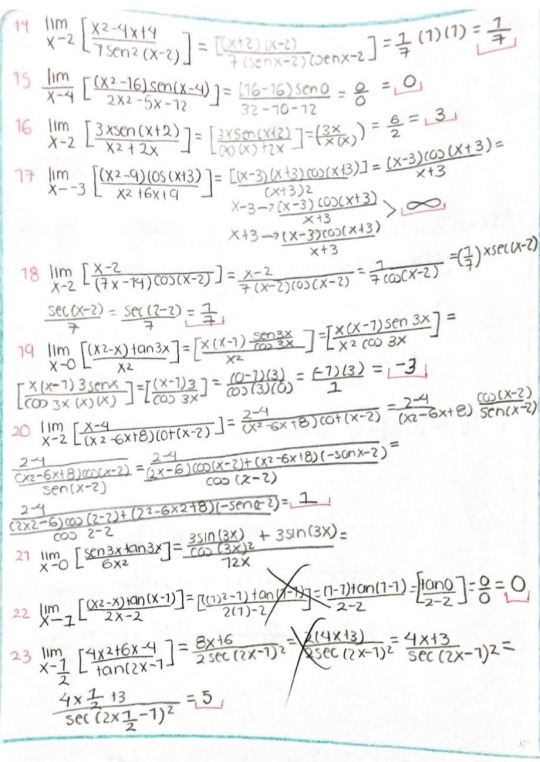 14 lim x-2 [x2-4x+4 / 7sen2(x-2)] = [(x+2)(x-2) / 7(senx-2)(senx-2)] = 1/7 (1)(1) = 1/7
15 lim x-4 [(x2-16)sen(x-4) / 2x2-5x-12] = (16-16)sen0 / 32-10-12 = 0/0 = 0
16 lim x-2 [3xsen(x+2) / x2+2x] = [3xsen(x+2) / (x)(x)+2x] = (3x / x(x)) = 6/2 = 3
17 lim x--3 [(x2-9)cos(x+3) / x2+6x+9] = [(x-3)(x+3)cos(x+3)] / (x+3)2 = (x-3)cos(x+3) / x+3 =
x-3→ (x-3)cos(x+3) / x+3
x+3→ (x-3)cos(x+3) / x+3 > ∞
18 lim x-2 [x-2 / (7x-14)cos(x-2)] = x-2 / 7(x-2)cos(x-2) = 1 / 7cos(x-2) = (1/7) x sec(x-2)
sec(x-2) / 7 = sec(2-2) / 7 = 1/7
19 lim x-0 [(x2-x)tan3x / x2] = [x(x-1) sen3x / cos 3x / x2] = [x(x-1)sen 3x / x2 cos 3x] =
[x(x-1)3senx / cos 3x (x)(x)] = [(x-1)3 / cos 3x] = (0-1)(3) / cos(3)(0) = (-1)(3) / 1 = -3
20 lim x-2 [x-4 / (x2-6x+8)cot(x-2)] = 2-4 / (x2-6x+8)cot(x-2) = 2-4 / (x2-6x+8) cos(x-2) / sen(x-2)
2-4 / (x2-6x+8)cos(x-2) / sen(x-2) = 2-4 / (2x-6)cos(x-2)+(x2-6x+8)(-senx-2) / cos(x-2) =
2-4 / (2x2-6)cos(2-2)+(22-6x2+8)(-sen2-2) / cos 2-2 = 1
21 lim x-0 [sen3xtan3x / 6x2] = 3sin(3x) / cos(3x)2 + 3sin(3x) / 12x =
22 lim x-1 [(x2-x)tan(x-1) / 2x-2] = [(1)2-1)tan(1-1) / 2(1)-2] = (1-1)tan(1-1) / 2-2 = [tan0 / 2-2] = 0/0 = 0
23 lim x-1/2 [4x2+6x-4 / tan(2x-1] = 8x+6 / 2sec(2x-1)2 = 2(4x+3) / 2sec(2x-1)2 = 4x+3 / sec(2x-1)2 =
4x1/2+3 / sec(2x1/2-1)2 = 5